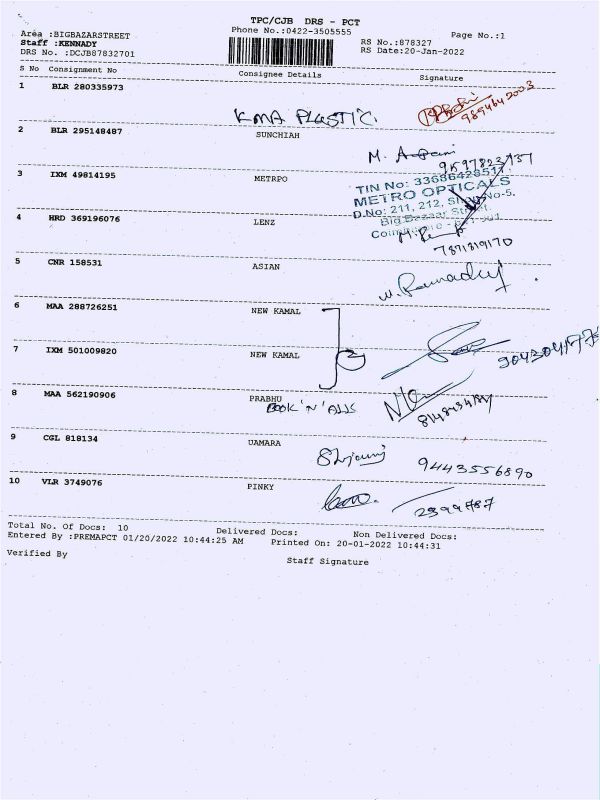 TPC/CJB DRS - PCT
Area :BIGBAZARSTREET
Phone No.:0422-3505555
Page No.:1
Staff :KENNADY
RS No.:878327
DRS No. :DCJB87832701
RS Date:20-Jan-2022
S No Consignment No Consignee Details Signature
1 BLR 280335973
KMA PLASTIC.
9894642003
2 BLR 295148487 SUNCHIAH
M.
9597823737
3 IXM 49814195 METRPO
TIN No: 33686428511
METRO OPTICALS
D.No: 211, 212, Shop No-5,
Big Bazaar Street,
Coimbatore -
4 HRD 369196076 LENZ
7871319170
5 CNR 158531 ASIAN
6 MAA 288726251 NEW KAMAL
7 IXM 501009820 NEW KAMAL
8 MAA 562190906 PRABHU
BOOK 'N' ALLS
9 CGL 818134 UAMARA
9443556890
10 VLR 3749076 PINKY
2399787
Total No. Of Docs: 10 Delivered Docs: Non Delivered Docs:
Entered By :PREMAPCT 01/20/2022 10:44:25 AM Printed On: 20-01-2022 10:44:31
Verified By Staff Signature